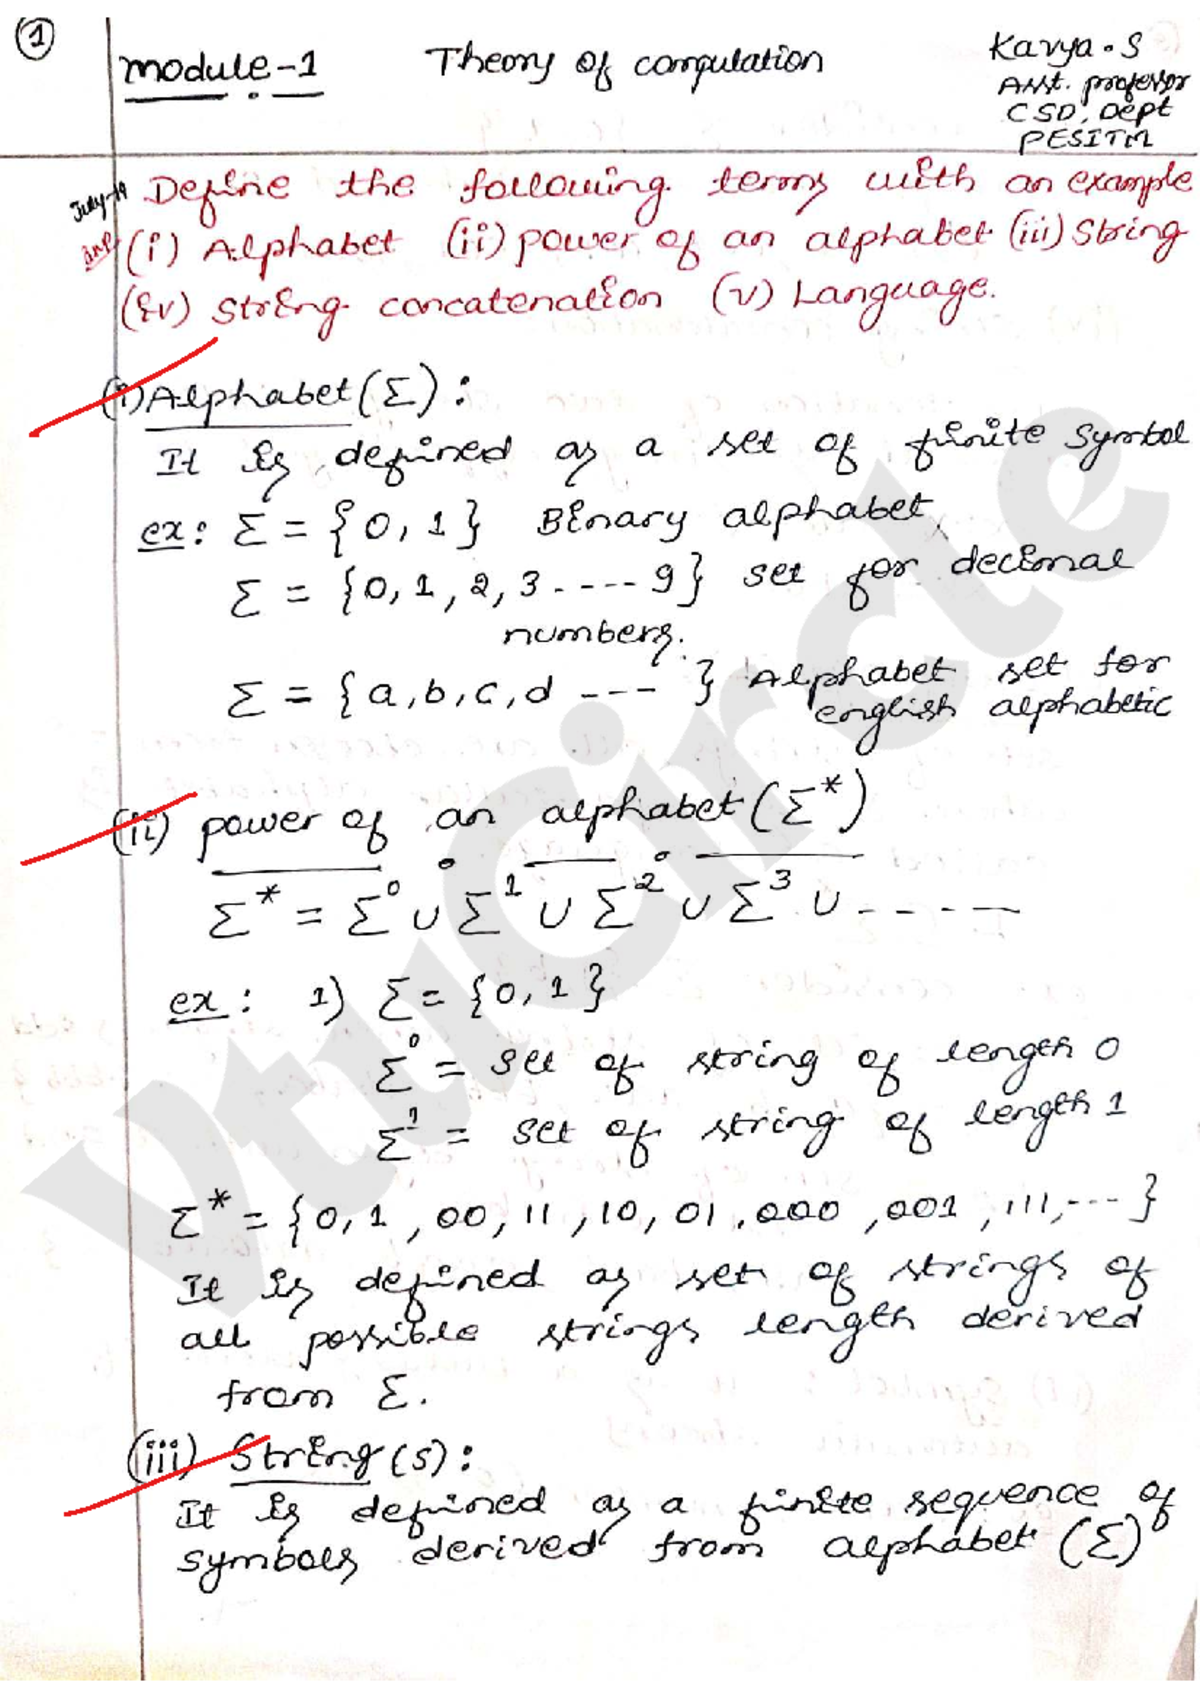 1
Module-1 Theory of computation
Kavya.S
Asst. professor
CSD, Dept
PESITM
July-19 Define the following terms with an example
Imp (i) Alphabet (ii) power of an alphabet (iii) String
(iv) string concatenation (v) Language.
(i) Alphabet (Σ):
It is defined as a set of finite symbol
ex: Σ = {0, 1} Binary alphabet,
Σ = {0, 1, 2, 3 ---- 9} set for decimal
numbers.
Σ = {a, b, c, d --- } Alphabet set for
english alphabetic
(ii) power of an alphabet (Σ*)
Σ* = Σ⁰ ∪ Σ¹ ∪ Σ² ∪ Σ³ ∪ -----
ex: 1) Σ = {0, 1}
Σ⁰ = set of string of length 0
Σ¹ = set of string of length 1
Σ* = {0, 1, 00, 11, 10, 01, 000, 001, 111, --- }
It is defined as set of strings of
all possible strings length derived
from Σ.
(iii) String (s):
It is defined as a finite sequence of
symbols derived from alphabet (Σ)
VtuCircle